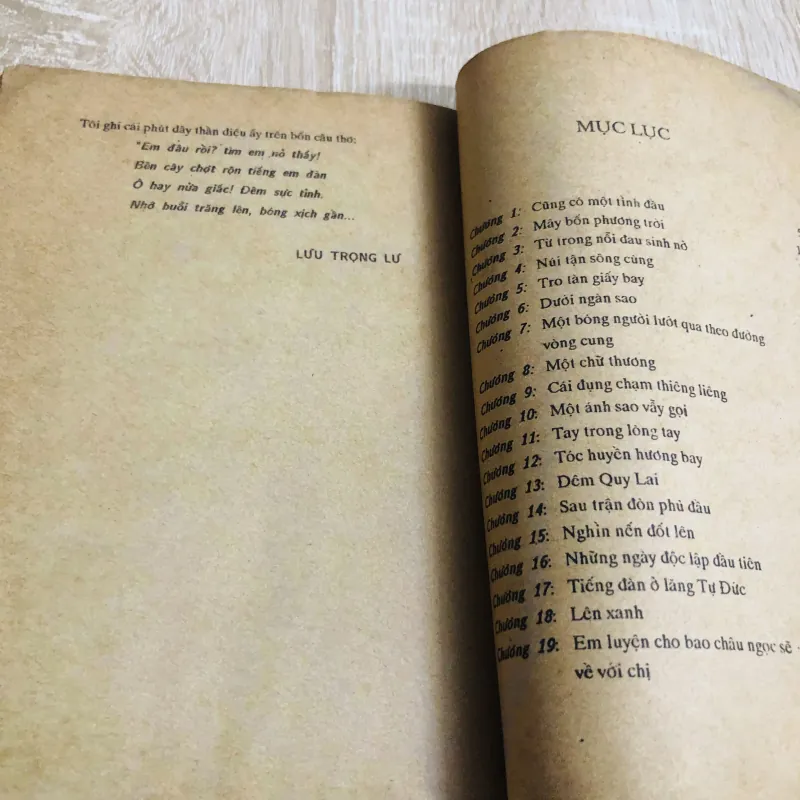 Tôi ghi cái phút đầy thần diệu ấy trên bốn câu thơ:
"Em đâu rồi? tìm em nỏ thấy!
Bên cây chợt rộn tiếng em đàn
Ồ hay nửa giấc! Đêm sực tỉnh.
Nhớ buổi trăng lên, bóng xịch gần...
LƯU TRỌNG LƯ
MỤC LỤC
Chương 1: Cũng có một tình đầu
Chương 2: Mây bốn phương trời
Chương 3: Từ trong nỗi đau sinh nở
Chương 4: Núi tận sông cùng
Chương 5: Tro tàn giấy bay
Chương 6: Dưới ngàn sao
Chương 7: Một bóng người lướt qua theo đường
vòng cung
Chương 8: Một chữ thương
Chương 9: Cái đụng chạm thiêng liêng
Chương 10: Một ánh sao vẫy gọi
Chương 11: Tay trong lòng tay
Chương 12: Tóc huyền hương bay
Chương 13: Đêm Quy Lai
Chương 14: Sau trận đòn phủ đầu
Chương 15: Nghìn nến đốt lên
Chương 16: Những ngày độc lập đầu tiên
Chương 17: Tiếng đàn ở lăng Tự Đức
Chương 18: Lên xanh
Chường 19: Em luyện cho bao châu ngọc sẽ
về với chị